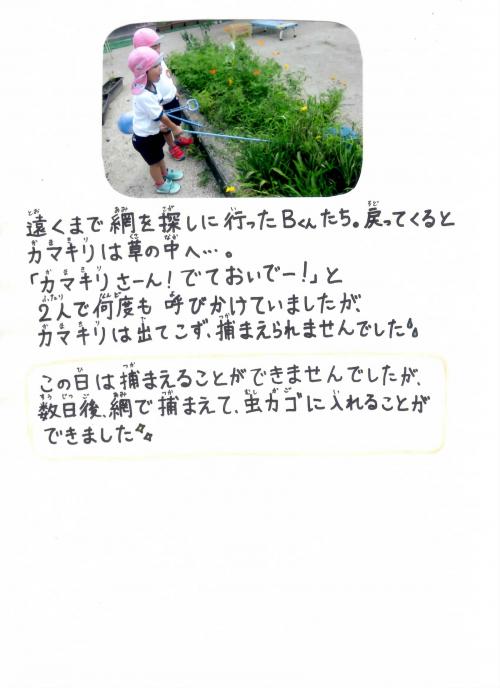 遠くまで網を探しに行ったBくんたち。戻ってくると
カマキリは草の中へ…。
「カマキリさーん！でておいでー！」と
2人で何度も呼びかけていましたが、
カマキリは出てこず、捕まえられませんでした
この日は捕まえることができませんでしたが、
数日後、網で捕まえて、虫カゴに入れることが
できました